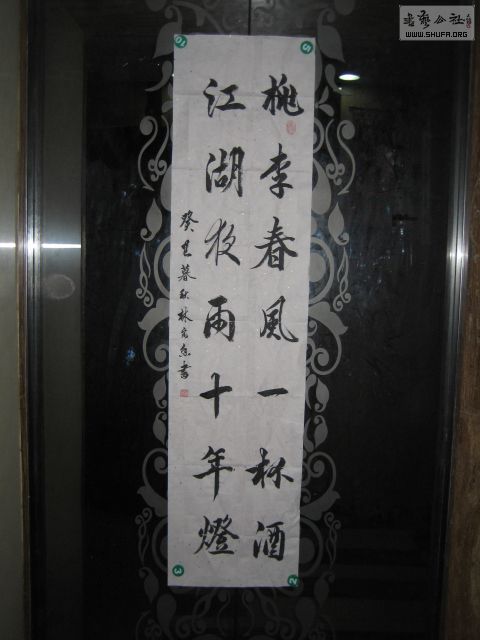 桃李春風一杯酒
江湖夜雨十年燈
癸巳暮秋林
書
書藝公社
WWW.SHUFA.ORG
5
2
3